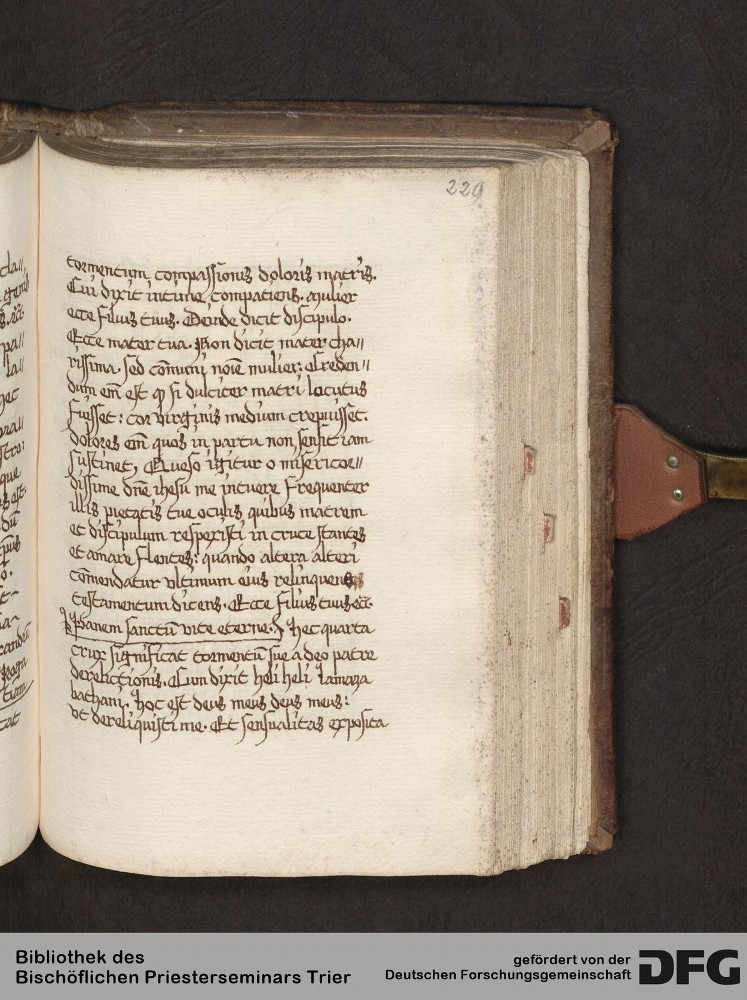 229
tormentum compassionis doloris matris.
Cui dixit intime compatiens. mulier
ecce filius tuus. Deinde dicit discipulo.
Ecce mater tua. Non dicit mater cha//
rissima. sed cōmuni noīe mulier: Creden//
dum em̄ est ꝙ si dulciter matri locutus
fuisset: cor virginis medium crepuisset.
dolores em̄ quos in partu non sensit iam
sustinet, Queso igitur o misericor//
dissime dn̄e ihesu me intuere frequenter
illis pietatis tue oculis quibus matrem
et discipulum respexisti in cruce stantes
et amare flentes: quando altera alteri
cōmendatur vltimum eius relinquens
testamentum dicens. Ecce filius tuus etc.
Panem sanctū vite eterne. Hec quarta
crux significat tormentū sue a deo patre
derelictionis. Cum dixit heli heli lamaza
bathani. hoc est deus meus deus meus:
vt dereliquisti me. Et sensualitas exposita
Bibliothek des
Bischöflichen Priesterseminars Trier
gefördert von der
Deutschen Forschungsgemeinschaft
DFG